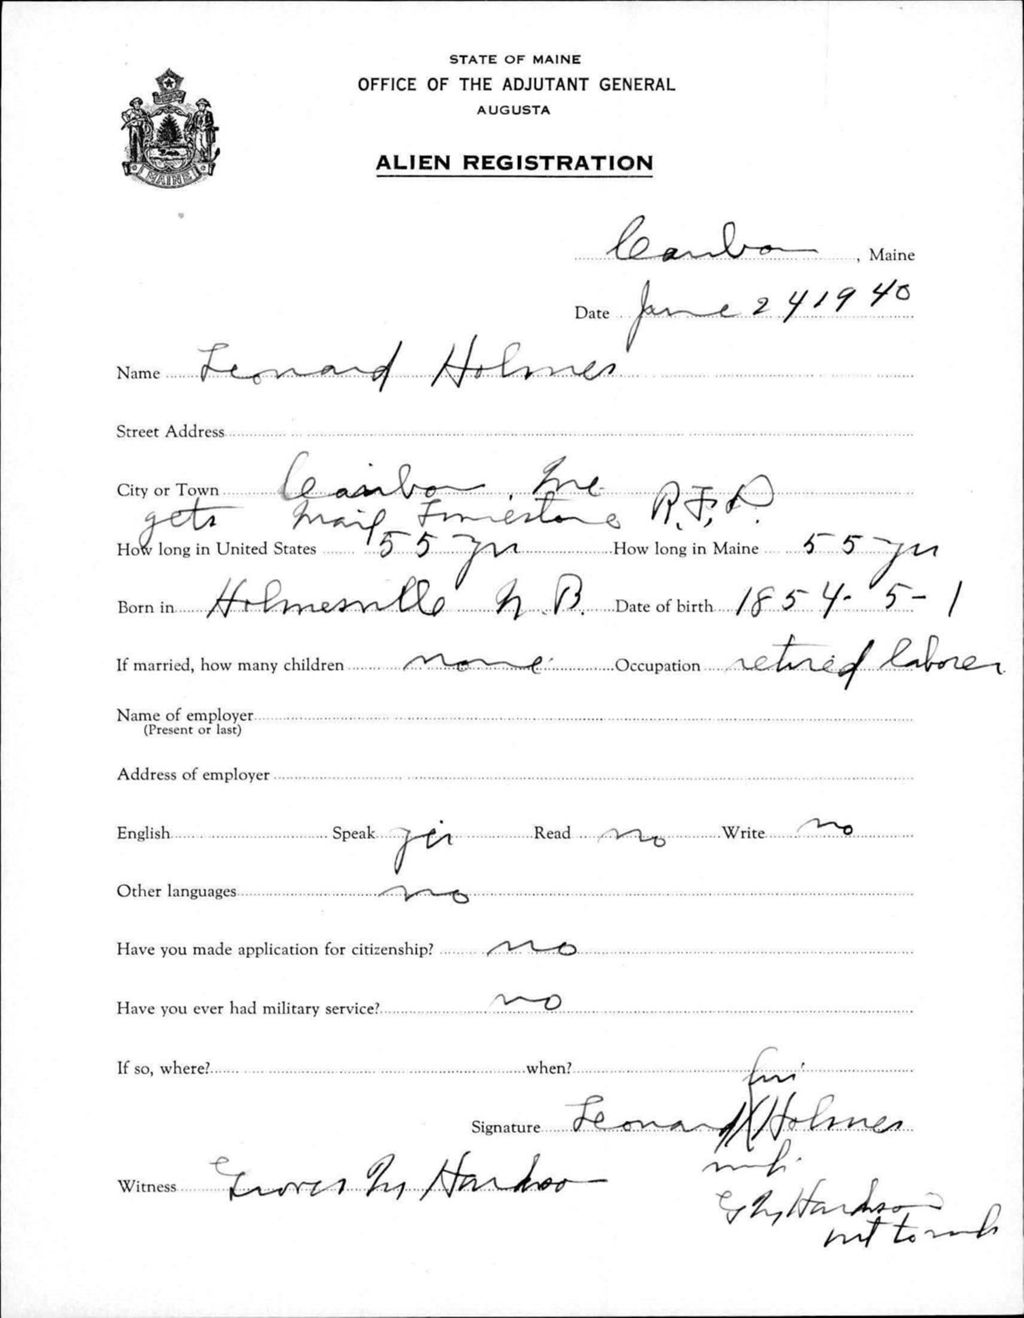 STATE OF MAINE
OFFICE OF THE ADJUTANT GENERAL
AUGUSTA
MAINE
ALIEN REGISTRATION
Caribou, Maine
Date June 24 1940
Name Leonard Holmes
Street Address
City or Town Caribou, Me
gets Mail Limestone R.F.D.
How long in United States 55 yrs How long in Maine 55 yrs
Born in Holmesville N.B. Date of birth 1854-5-1
If married, how many children none Occupation retired laborer
Name of employer
(Present or last)
Address of employer
English Speak yes Read no Write no
Other languages no
Have you made application for citizenship? no
Have you ever had military service? no
If so, where? when?
his
Signature Leonard X Holmes
mk.
Witness Grover M Hardison
G M Hardison
wit to mk